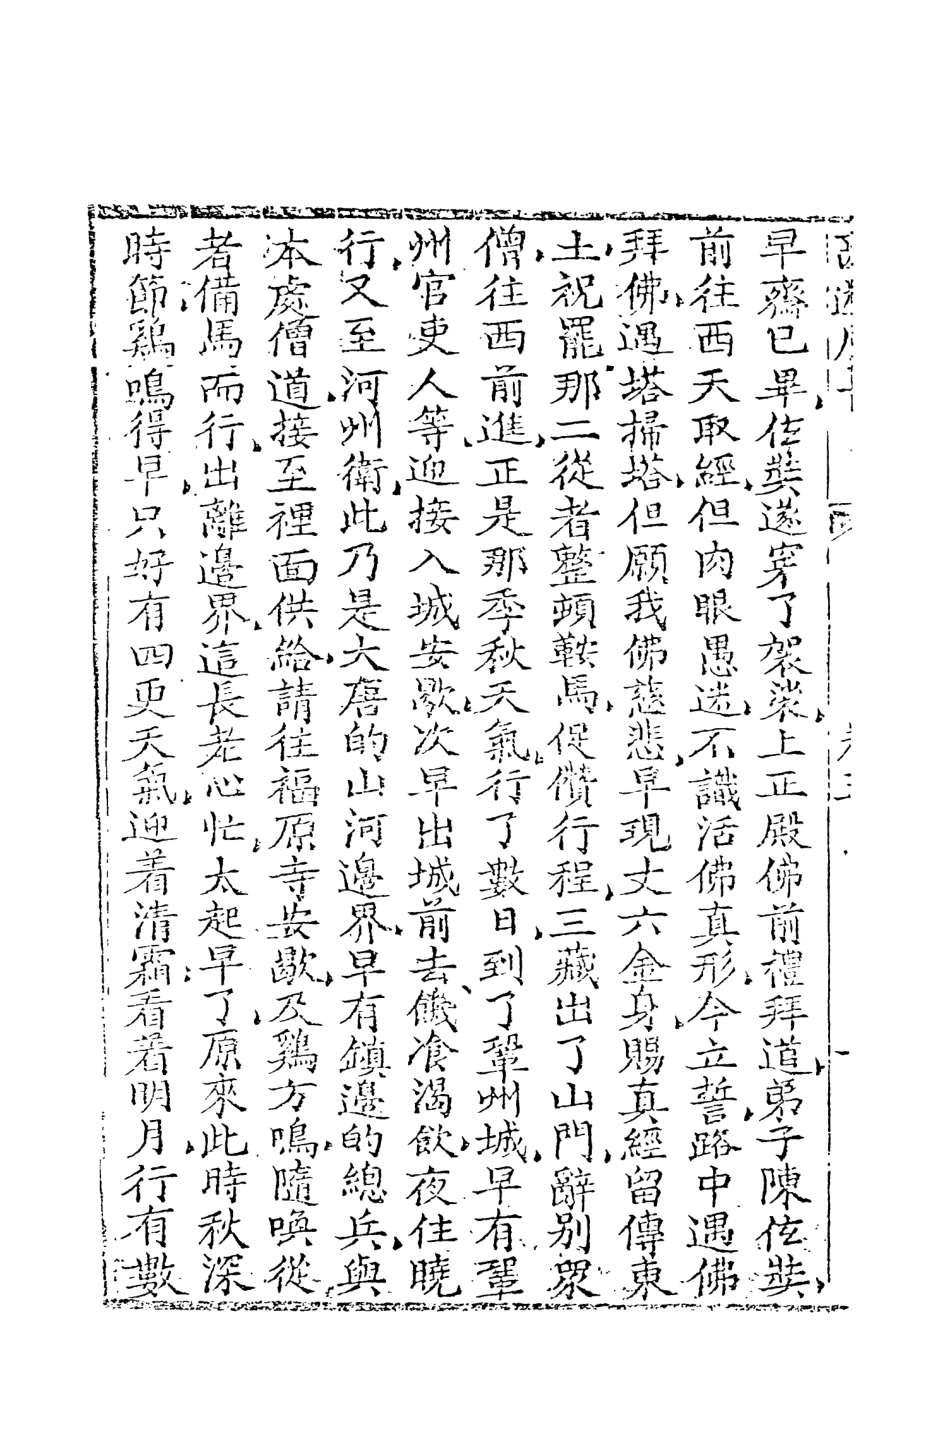 早齋已畢佐奘遂穿了袈裟上正殿佛前禮拜道弟子陳佐奘
前往西天取經但肉眼愚迷不識活佛真形今立誓路中遇佛
拜佛遇塔掃塔但願我佛慈悲早現丈六金身賜真經留傳東
土祝罷那二從者整頓鞍馬促儹行程三藏出了山門辭別眾
僧往西前進正是那季秋天氣行了數日到了鞏州城早有鞏
州官吏人等迎接入城安歇次早出城前去饑飡渴飲夜住曉
行又至河州衛此乃是大唐的山河邊界早有鎮邊的總兵與
本處僧道接至裡面供給請往福原寺安歇及鷄方鳴隨喚從
者備馬而行出離邊界這長老心忙太起早了原來此時秋深
時節鷄鳴得早只好有四更天氣迎着清霜看着明月行有數